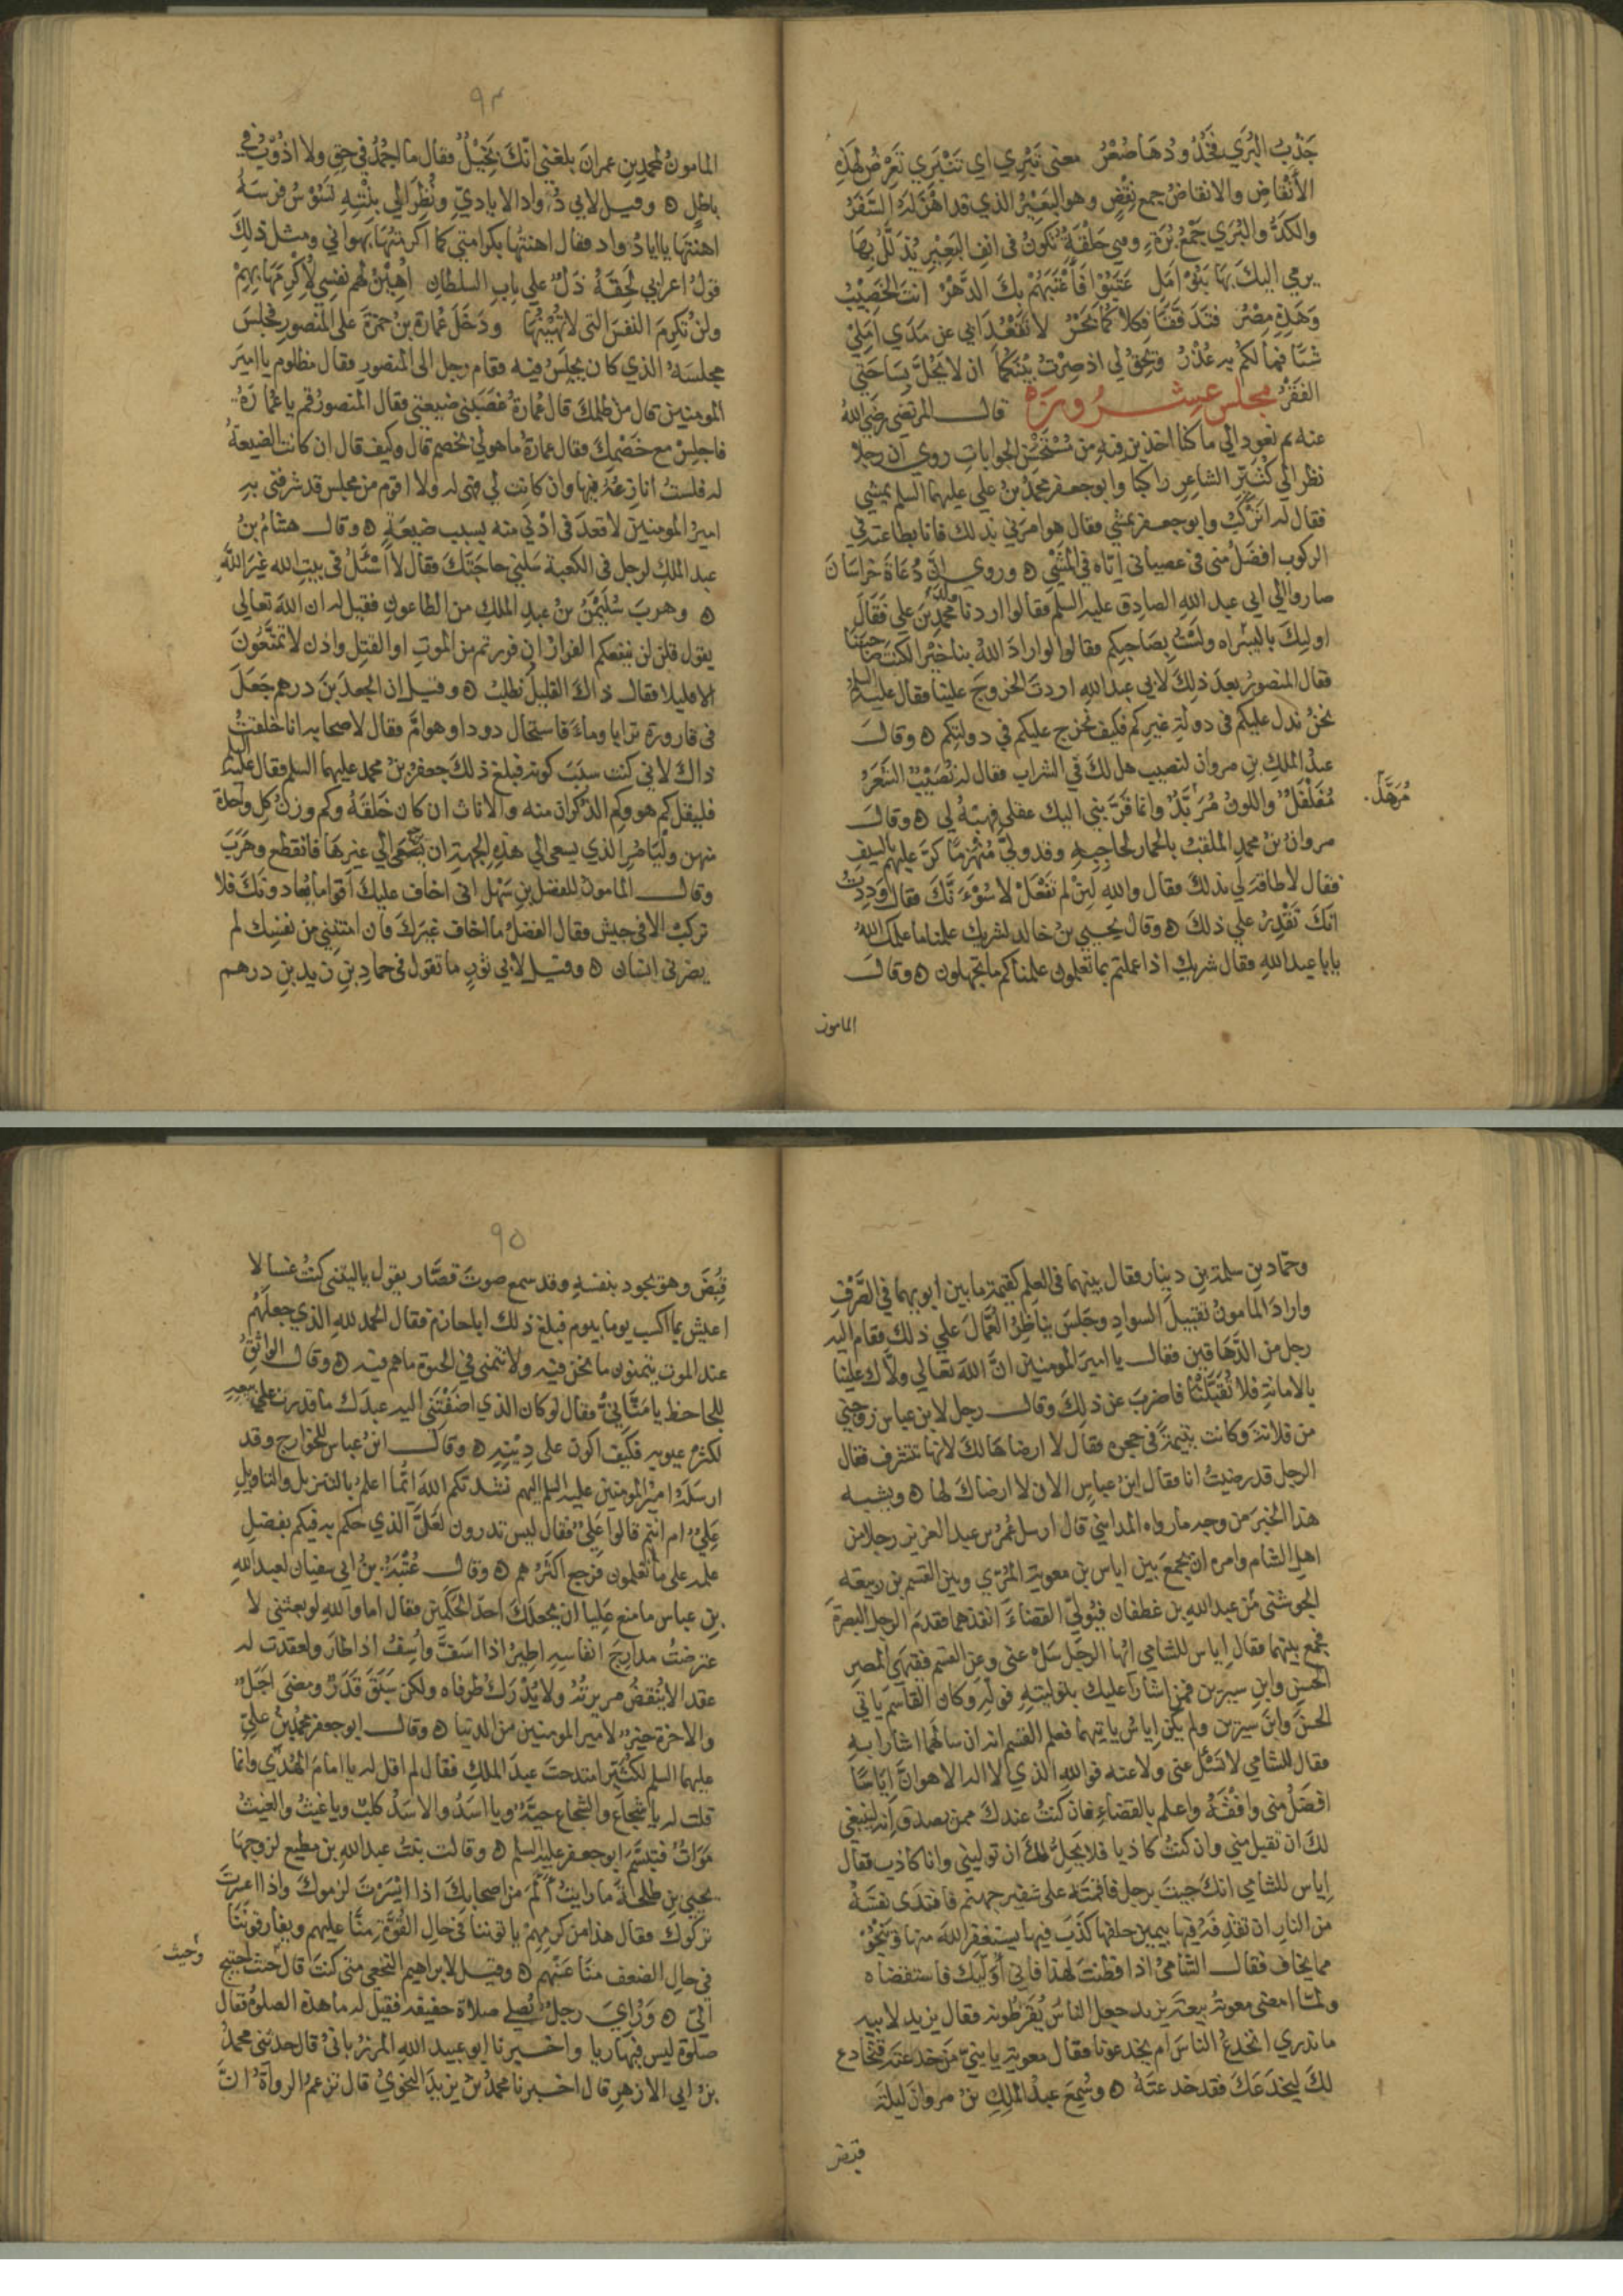 جَذْبُ البُرَي بخُدُودهَا صُعْرُ معنى تَبْري اي تنْبَري تَعرّضُ لهذِهِ
الأنْقاضِ والانقاضُ جمع نِقْضٍ وهو البَعيْرُ الذي قد اهْزَلَهُ السَّفَرُ
والكدّ والبُرَي جَمْعُ بُرَةٍ وهي حَلْقَةٌ تكونُ في انفِ البَعِيْرِ يُذَلَّلُ بهَا
يرمي اليكَ بهَا بَنُوْ امَلٍ عَتَبُوْا فَأعْتَبَهُمْ بكَ الدَّهْرُ انتَ الخَصِيْبُ
وَهَذِهِ مِصْرُ فتَدفّقَا فكلاكُمَا بَحْرُ لا تَقعُدَا بي عن مَدَي امَلِيْ
شيًا فما لكُمْ بِهِ عُذْرُ ويَحِقُّ لي اذ صِرْتُ بَيْنَكُمَا ان لا يَحُلَّ بسَاحَتي
الفَقْرُ مجلس عشرون قال المرتضى رضي الله
عنه ثم نعود الي ما كنا اخذين فيه من مُسْتَحْسَنِ الجواباتِ روي ان رجلا
نظر الي كُثَيّرٍ الشاعرِ راكبا وابو جعفر محمدُ بنُ علي عليهما السلم يمشي
فقال له اتركبُ وابو جعفر يمشي فقال هو امرني بذلك فانا بطاعته في
الركوب افضلُ مني في عصياني ايّاه في المشْي ه وروي انّ دُعَاةَ خراسَانَ
صاروا الي ابي عبد الله الصادق عليه السلم فقالوا اردنا ولد محمد بن علي فقَالَ
اوليكَ بالسراه ولَسْتُ بصَاحبكم فقالوا لو ارادَ اللهُ بنا خيرًا كنتَ صاحبنا
فقال المنصورُ بعدَ ذلِكَ لابي عبد اللهِ اردتَ الخروجَ علينا فقال عليه السلم
نحنُ ندل عليكم في دولةِ غيرِكم فكيفَ نخرج عليكم في دولتكم ه وقال
عبدُ الملكِ بن مروان لنصيب هل لكَ في الشراب فقال له نُصَيْبٌ الشَعَرُ
مُفَلْفَلٌ واللونُ مُرَبَّدٌ وانما قرَّبني اليك عقلي فهَبْهُ لي ه وقال
مُرَهَّل
مروانُ بنُ محمدٍ الملقبُ بالحمار لحاجبِهِ وقد ولّي مُنْهَزِمًا كرّ عليهم بالسيفِ
فقال لا طاقةَ لي بذلكَ فقال واللهِ لئِنْ لم تفعَلْ لاسُوْءَنَّكَ فقال وددتُ
انكَ تَقْدِرُ علي ذلكَ ه وقال يحيي بنُ خالد لشريك علّمنا ما علمكَ اللهُ
يابا عبد اللهِ فقال شريك اذا عملتم بما تعلمون علمناكم ما تجهلون ه وقال
المامون
٩٤
المامونُ لمحمد بن عمرانَ بلغني انّكَ بَخِيْلٌ فقال ما اجمُدُ في حقٍ ولا اذُوْبُ في
باطلٍ ه وقيل لابي دُوادٍ الايادي ونُظِرَ الي بنْتِهِ تَسُوْسُ فَرسَهُ
اهنتَهَا يابا دُوادٍ فقال اهنتُها بكرامتي كما اكرمتُهَا بهَواني ومثل ذلِكَ
قولُ اعرابي لَحِقَهُ ذلٌ علي باب السلطانِ اُهِيْنُ لهم نفسِي لاُكْرِمَهَا بهِمْ
ولن تُكرِمَ النفسَ التي لا تُهِيْنُها ودَخَلَ عُمارة بن حمزةَ على المنصورِ فجلسَ
مجلسَهُ الذي كان يجلسُ فيه فقام رجل الى المنصور فقال مظلوم يا اميرَ
المومنين قال من ظلمكَ قال عُمارةُ غصَبَني ضيعتي فقال المنصورُ قم يا عُمارَةُ
فاجلِسْ مع خَصْمِكَ فقال عمارةُ ما هو لي بخصم قال وكيف قال ان كانت الضيعةُ
له فلستُ انازعُهُ فيها وان كانت لي فهي له ولا اقوم من مجلس قد شرفني به
اميرُ المومنينَ لاقعدَ في ادني منه بسبب ضيعَةٍ ه وقال هشامُ بنُ
عبد الملكِ لرجل في الكعبة سَلني حاجتَكَ فقال لا اَسْئَلُ في بيتِ الله غيرَ اللهِ
ه وهربَ سُلَيْمنُ بنُ عبدِ الملكِ من الطاعونِ فقيل له ان اللهَ تعالي
يقول قل لن ينفعكم الفرارُ ان فررتم من الموتِ او القتلِ واذن لا تمتّعُونَ
الا قليلا فقال ذاكَ القليلُ نطلبُ ه وقيل ان الجعدَ بنَ درهم جَعَلَ
في قارورة ترابا وماءً فاستحال دودا وهوامَّ فقال لاصحابه انا خلقتُ
ذاكَ لاني كنت سببَ كونه فبلغ ذلكَ جعفرُ بنُ محمد عليهما السلم فقال عليه السلم
فليقل كم هو وكم الذكران منه والاناث ان كان خَلقَهُ وكم وزنُ كلِ واحدةٍ
منهن وليامُرِ الذي يسعى الي هذهِ الجهةِ ان يَسْعَي الي غيرهَا فانقطع وهَرَبَ
وقال المامونُ للفضل بن سَهْل اني اخاف عليكَ اقواما يُعادونَكَ فلا
تركبْ الا في جيش فقال الفضلُ ما اخاف غيرَكَ فان امنتني من نفسِك لم
يضرني انسان ه وقيل لابي ثوب ما تقول في حمادِ بنِ زيد بنِ درهم
وحمّاد بن سلمة بن دينار وقال بينهما في العلم كقيمة ما بين ابويهما في الصَّرْفِ
وارادَ المامونُ تقبيلَ السوادِ وجَلَسَ يناظِرُ العُمّالَ علي ذلك فقام اليه
رجل من الدّهاقين فقال يا اميرَ المومنين انَّ اللهَ تعالي ولاّك علينا
بالامانةِ فلا تُقَبِّلْنَا فاضربَ عن ذلِكَ وقال رجل لابن عباس زوجني
من فلانةَ وكانت يتيمةً في حجره فقال لا ارضاهَا لكَ لانها تتشرف فقال
الرجل قد رضيتُ انا فقال ابنُ عباسٍ الان لا ارضاكَ لها ه ويشبه
هذا الخبرَ من وجه ما رواه المدايني قال ارسل عُمَرُ بن عبد العزيز رجلا من
اهلِ الشام وامره ان يجمعَ بين اياس بن معوية المُزني وبين القسم بن ربيعة
الجوشني من عبد الله بن غطفان فيُولّي القضاءَ انفذهما فقدم الرجل البصرةَ
فجمع بينهما فقال اِياس للشامي ايّها الرجل سَلْ عني وعن القسم فقيهَي المصرِ
الحسنِ وابن سيرين فمن اشارا عليك بتوليتِهِ فوله وكان القاسم ياتي
الحسنَ وابنَ سيرين ولم يكن اِياسُ ياتيهما فعلم القسم انه ان سالهُما اشارا به
فقال للشامي لا تسئَلْ عني ولا عنه فوالله الذي لا اله الا هو انّ اِياسًا
افضلُ مني وافْقَهُ واعلم بالقضاءِ فان كنتُ عندكَ ممن يصدق اِنه لينبغي
لكَ ان تقبل مني وان كنتُ كاذبا فلا يَحِلُّ لكَ ان توليني وانا كاذب فقال
اِياس للشامي انكَ جيتَ برجل فاقمتَهُ على شفيرِ جهنم فافتدَى نفسَهُ
من النارِ ان تقذفهُ فيها بيمين حلفها كذَبَ فيها يستغفرُ اللهَ منها ويَنْجُوْ
مما يخاف فقال الشاميُ اذا فطنتَ لهذا فاني اُوَلّيكَ فاستقضاه
ولمّا امضى معوية بيعةَ يزيد جعل الناسُ يُقَرّظونه فقال يزيد لابيه
ما ندري انخدعُ الناسَ ام يخدعوننا فقال معوية يا بنيّ مَن خدعتَه فتخادع
لكَ ليخدَعَكَ فقد خدعتَهُ ه وسُمِعَ عبدُ الملكِ بنُ مروانَ ليلةَ
قبض
٩٥
قُبِضَ وهو يجود بنفسه وقد سمع صوتَ قصّار يقول يا ليتني كنتُ غسالا
اعيش بما اكسبُ يوما بيوم فبلغ ذلك ابا حازم فقال الحمد للهِ الذي جعلَهُم
عند الموتِ يتمنونَ ما نحن فيه ولا نتمنى في الحيوة ما هم فيه ه وقال الواثقُ
للجاحظ يا مَنّانيُّ فقال لو كان الذي اضفتَني اليه عبدَك ما قدرت على بيعه
لكثرة عيوبه فكيفَ اكون على دِيْنِهِ ه وقال ابنُ عباس للخوارج وقد
ارسلَهُ اميرُ المومنين عليه السلم اليهم نشدتكم اللهَ ايّما اعلمُ بالتنزيل والتاويلِ
عَليٌّ ام انتم قالوا عَليٌّ فقال ليس تدرون لَعَلّ الذي حكم به فيكم بفضلِ
علمه على ما تعلمون فرجع اكثَرُهم ه وقال عُتْبَةُ بنُ ابي سفيان لعبد اللهِ
بن عباس ما منع عَلِيا ان يجعلَكَ احدَ الحكمين فقال اما واللهِ لو بعثني لا
عترضتُ مدارِجَ انفاسِهِ اطِيرُ اذا اسَفَّ واُسِفُّ اذا طارَ ولعقدت له
عقدا لا يُنقضُ مريرتُهُ ولا يُدْرَكُ طرفاه ولكن سَبَقَ قَدَرٌ ومضى اجلٌ
والاخرة خيرٌ لامير المومنين من الدنيا ه وقال ابو جعفر محمدُ بنُ علي
عليهما السلم لكُثَيّر امتدحتَ عبدَ الملكِ فقال لم اقل له يا امامَ الهُدي وانما
قلت له يا شجاع والشجاع حيّة ويا اسَدُ والاسدُ كلبٌ ويا غيثُ والغيثُ
مَوَاتٌ فتبسَّمَ ابو جعفر عليه السلم ه وقالت بنتُ عبد اللهِ بن مطيع لزوجها
يحيي بن طلحةَ ما رايتُ اَلْأمَ من اصحابكَ اذا ايْسَرْتَ لزموكَ واذا اعسرتَ
تركوكَ فقال هذا من كرمِهِمْ ياتوننا في حالِ القُوّةِ مِنّا عليهم ويفارقوننَا
في حالِ الضعف منّا عَنْهم ه وقيل لابراهيم النخعي متى كنتَ قال حيث احتيج
وحيث
اليّ ه وَرُاِيَ رجلٌ يُصلي صلاةً خفيفة فقيل له ما هذهِ الصلوةُ فقال
صلوة ليس فيها ريا واخبرنا ابو عبيد الله المرزُبانيُ قال حدثني محمدُ
بنُ ابي الازهر قال اخبرنا محمدُ بنُ يزيدَ النحويُ قال تزعمُ الرواةُ انَّ